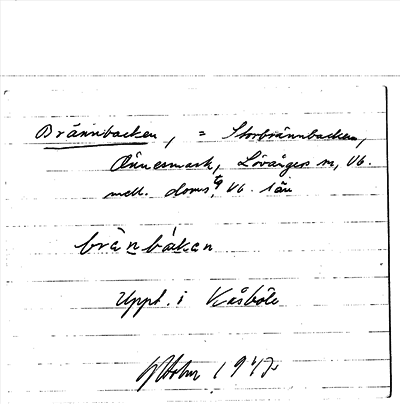 Brännbacken, = Storbrännbacken,
Önnesmark, Lövångers sn, Vb.
mell. doms., Vb. län
brànbákan
Uppt. i Kåsböle
1947